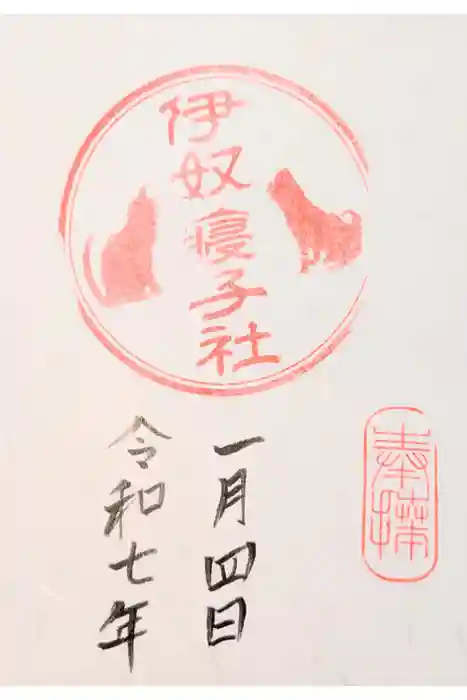 奉拝
伊奴寝子社
一月四日
令和七年